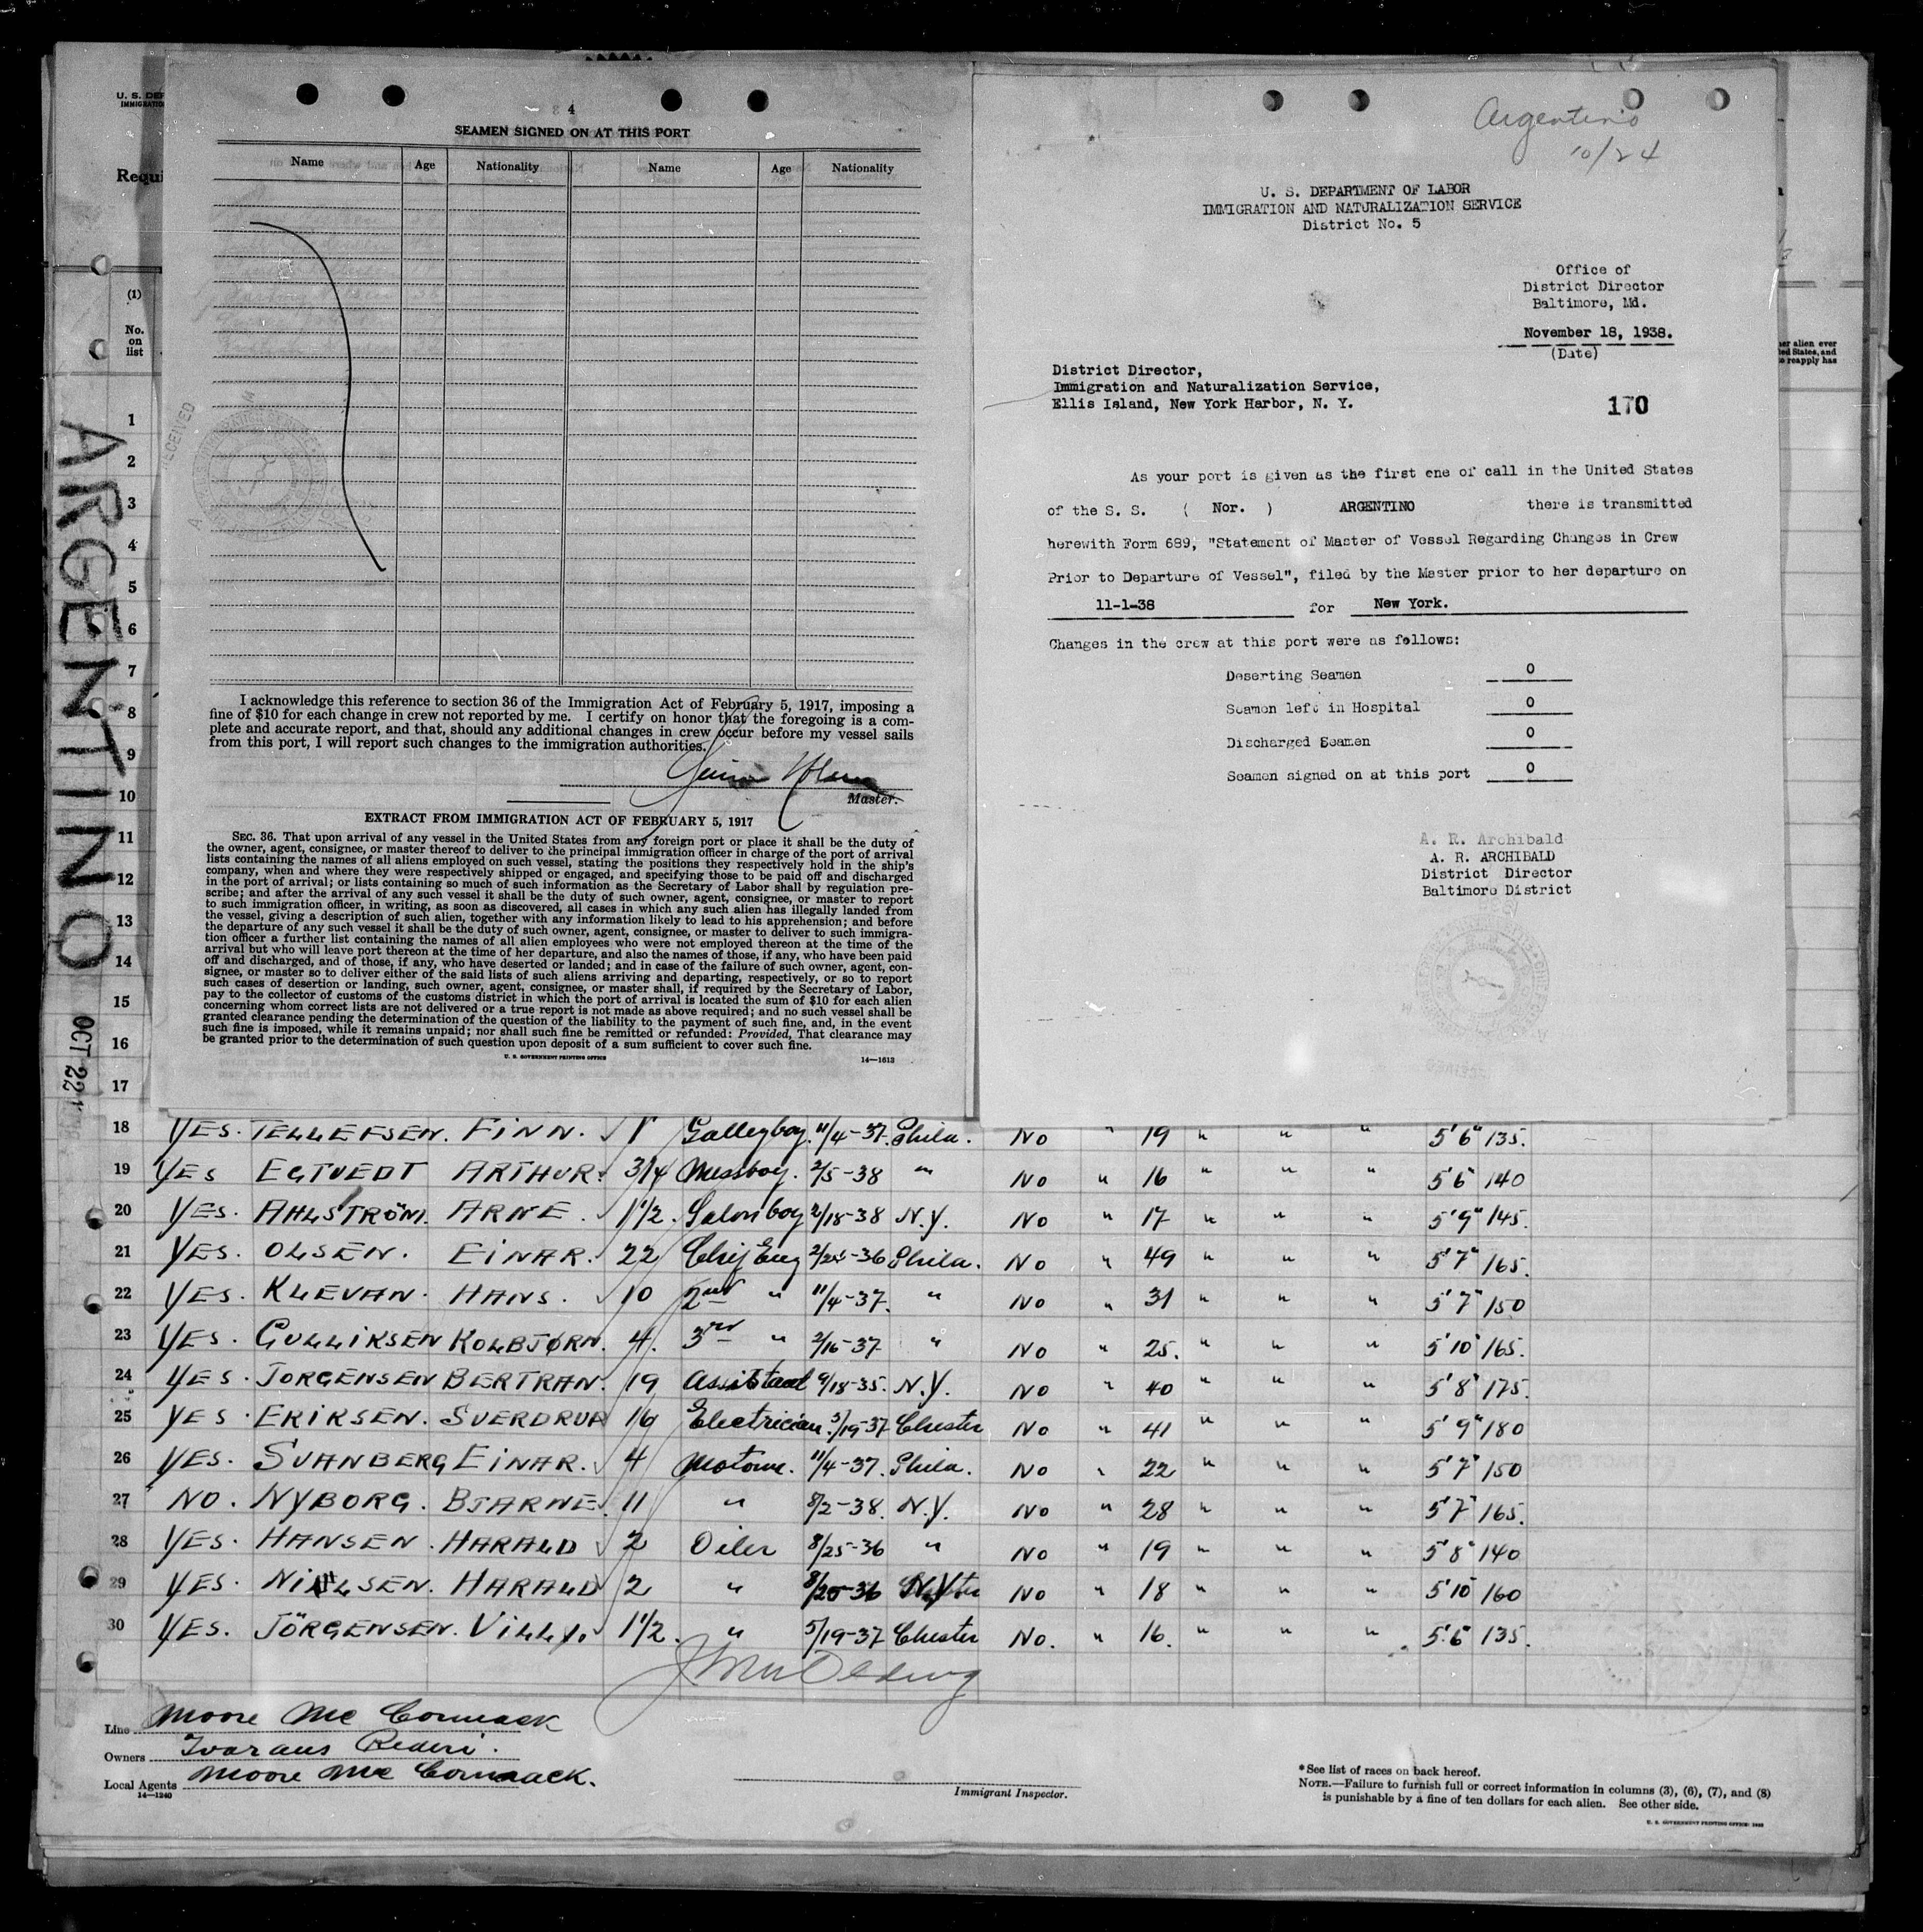 U. S. DEP
IMMIGRATIO
Requi
(1)
No.
on
list
ARGENTINO
OCT 22 1
4
SEAMEN SIGNED ON AT THIS PORT
Name Age Nationality Name Age Nationality
RECEIVED
I acknowledge this reference to section 36 of the Immigration Act of February 5, 1917, imposing a
fine of $10 for each change in crew not reported by me. I certify on honor that the foregoing is a com-
plete and accurate report, and that, should any additional changes in crew occur before my vessel sails
from this port, I will report such changes to the immigration authorities.
Master.
EXTRACT FROM IMMIGRATION ACT OF FEBRUARY 5, 1917
SEC. 36. That upon arrival of any vessel in the United States from any foreign port or place it shall be the duty of
the owner, agent, consignee, or master thereof to deliver to the principal immigration officer in charge of the port of arrival
lists containing the names of all aliens employed on such vessel, stating the positions they respectively hold in the ship's
company, when and where they were respectively shipped or engaged, and specifying those to be paid off and discharged
in the port of arrival; or lists containing so much of such information as the Secretary of Labor shall by regulation pre-
scribe; and after the arrival of any such vessel it shall be the duty of such owner, agent, consignee, or master to report
to such immigration officer, in writing, as soon as discovered, all cases in which any such alien has illegally landed from
the vessel, giving a description of such alien, together with any information likely to lead to his apprehension; and before
the departure of any such vessel it shall be the duty of such owner, agent, consignee, or master to deliver to such immigra-
tion officer a further list containing the names of all alien employees who were not employed thereon at the time of the
arrival but who will leave port thereon at the time of her departure, and also the names of those, if any, who have been paid
off and discharged, and of those, if any, who have deserted or landed; and in case of the failure of such owner, agent, con-
signee, or master so to deliver either of the said lists of such aliens arriving and departing, respectively, or so to report
such cases of desertion or landing, such owner, agent, consignee, or master shall, if required by the Secretary of Labor,
pay to the collector of customs of the customs district in which the port of arrival is located the sum of $10 for each alien
concerning whom correct lists are not delivered or a true report is not made as above required; and no such vessel shall be
granted clearance pending the determination of the question of the liability to the payment of such fine, and, in the event
such fine is imposed, while it remains unpaid; nor shall such fine be remitted or refunded: Provided, That clearance may
be granted prior to the determination of such question upon deposit of a sum sufficient to cover such fine.
U. S. GOVERNMENT PRINTING OFFICE 14—1613
Argentino
10/24
U. S. DEPARTMENT OF LABOR
IMMIGRATION AND NATURALIZATION SERVICE
District No. 5
Office of
District Director
Baltimore, Md.
November 18, 1938.
(Date)
District Director,
Immigration and Naturalization Service,
Ellis Island, New York Harbor, N. Y.
170
As your port is given as the first one of call in the United States
of the S. S. ( Nor. ) ARGENTINO there is transmitted
herewith Form 689, "Statement of Master of Vessel Regarding Changes in Crew
Prior to Departure of Vessel", filed by the Master prior to her departure on
11-1-38 for New York.
Changes in the crew at this port were as follows:
Deserting Seamen 0
Seamen left in Hospital 0
Discharged Seamen 0
Seamen signed on at this port 0
A. R. Archibald
A. R. ARCHIBALD
District Director
Baltimore District
her alien ever
ted States, and
to reapply has
1
2
3
4
5
6
7
8
9
10
11
12
13
14
15
16
17
18 YES. TELLEFSEN. FINN. Galleyboy. 11/4-37. Phila. No " 19 " " " 5'6" 135.
19 YES EGTVEDT ARTHUR. 3/4 Messboy. 2/5-38 " No " 16 " " " 5'6" 140
20 YES. AHLSTRÖM. ARNE. 1 1/2. Salonboy 2/18-38 N.Y. No " 17 " " " 5'9" 145.
21 YES. OLSEN. EINAR. 22 Chif Eng 2/25-36 Phila. No " 49 " " " 5'7" 165.
22 YES. KLEVAN. HANS. 10 2nd " 11/4-37. " No " 31 " " " 5'7" 150
23 YES. GULLIKSEN KOLBJØRN. 4. 3rd " 2/16-37 " No " 25. " " " 5'10" 165.
24 YES. JORGENSEN BERTRAN. 19 Assistant 9/18-35. N.Y. No " 40 " " " 5'8" 175.
25 YES. ERIKSEN. SVERDRUP 16 Electrician. 5/19-37 Chester No " 41 " " " 5'9" 180
26 YES. SVANBERG EINAR. 4 Motorm. 11/4-37. Phila. No " 22 " " " 5'7" 150
27 NO. NYBORG. BJARNE. 11 " 8/2-38. N.Y. No " 28 " " " 5'7" 165.
28 YES. HANSEN. HARALD 2 Oiler 8/25-36 " No " 19 " " " 5'8" 140
29 YES. NIELSEN. HARALD 2 " 8/20-36 N.Y. No " 18 " " " 5'10" 160
30 YES. JÖRGENSEN. VILLY. 1 1/2. " 5/19-37 Chester No. " 16. " " " 5'6" 135.
Line Moore Mc Cormack
Owners Ivarans Rederi.
Local Agents Moore Mc Cormack.
14—1240
Immigrant Inspector.
* See list of races on back hereof.
NOTE.—Failure to furnish full or correct information in columns (3), (6), (7), and (8)
is punishable by a fine of ten dollars for each alien. See other side.
U. S. GOVERNMENT PRINTING OFFICE